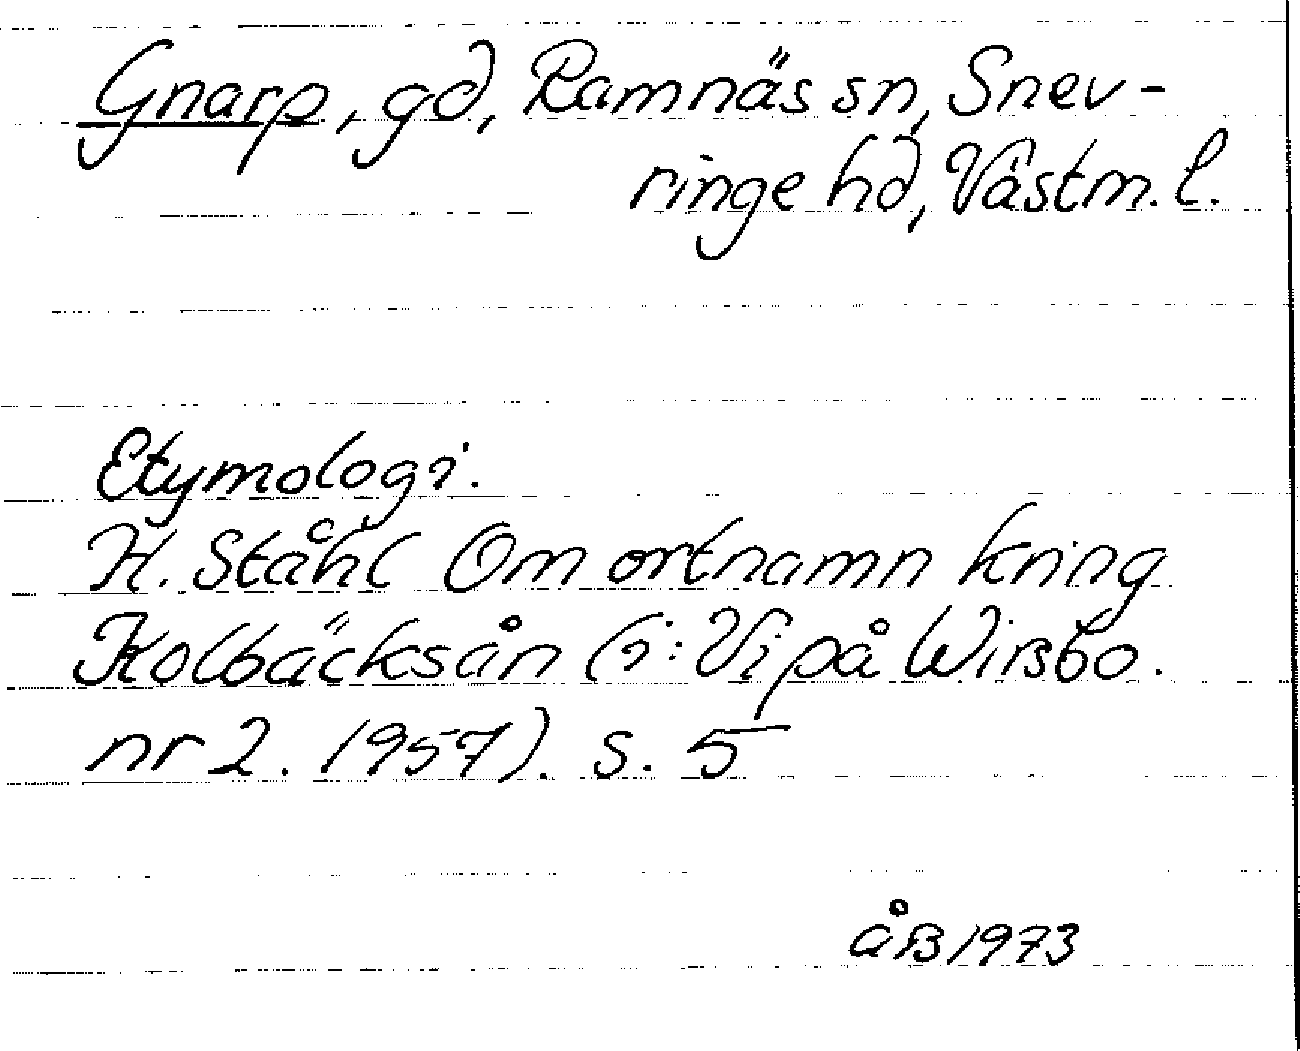 Gnarp, gd, Ramnäs sn, Snev-
ringe hd, Västm. l.
Etymologi.
H. Ståhl Om ortnamn kring
Kolbäcksån (i: Vi på Wirsbo.
nr 2. 1957). s. 5
åB 1973